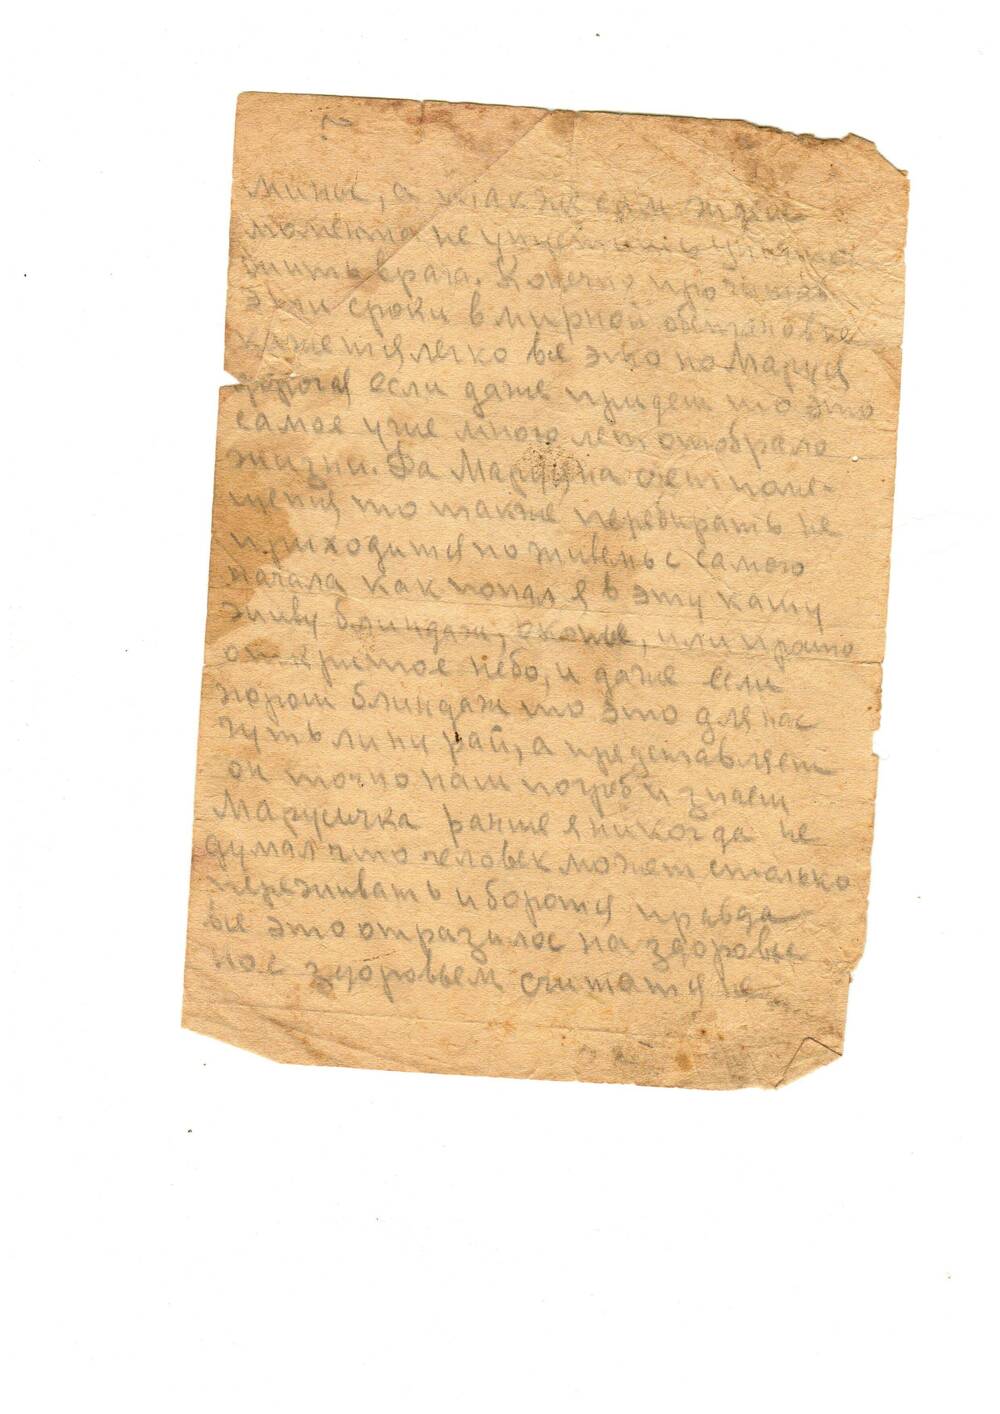 мины, а также сам ждеш
момента не упустить уничто
жить врага. Конечно прочитат
эти сроки в мирной обстановке
кажется легко все это но Маруся
дорогая если даже придеш то это
самое уже много лет отобрало
жизни. Да Маруся на счет поме-
щения то также перебирать не
приходится по живень с самого
начала как попал я в эту кашу
живу блиндаж, окопы, или просто
открытое небо, и даже если
хорош блиндаж то это для нас
чуть ли ни рай, а представляет
он точно наш погреб и знаеш
Марусичка ранше я никогда не
думал что человек может столько
переживать и боротся правда
все это отразилос на здоровье
но с здоровьем считатся не